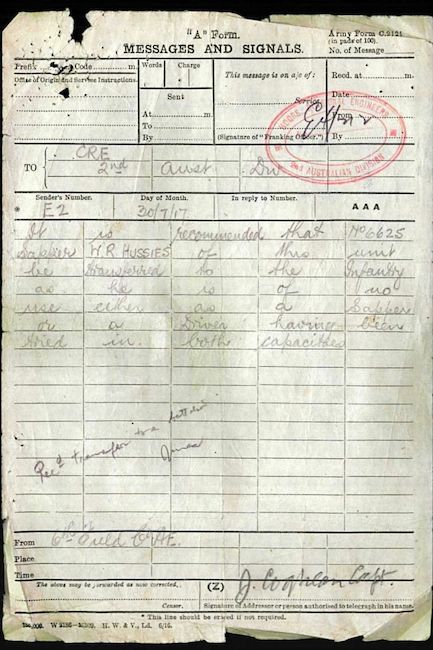 "A" Form.
Army Form C.2121
(in pads of 100).
MESSAGES AND SIGNALS.
No. of Message
Prefix Code
Words Charge
This message is on a/c of:
Recd. at
Office of Origin and Service Instructions.
Sent
Date
Service.
From
At
To
By
(Signature of "Franking Officer.")
By
ENGINEER
2nd AUSTRALIAN DIVISION
TO
CRE
2nd Aust Div
Sender's Number. Day of Month. In reply to Number. AAA
* E2 30/7/17
It is recommended that No 6625
Sapper W.R. HUSSIES of this unit
be transferred to the Infantry
as he is of no
use either as a Sapper
or a Driver having been
tried in both capacities
transfer to a
From 6th Field Coy AE.
Place
Time
The above may be forwarded as now corrected. (Z)
J. Capt.
Censor. Signature of Addressor or person authorised to telegraph in his name.
* This line should be erased if not required.
H. W. & V., Ld. 6/16.